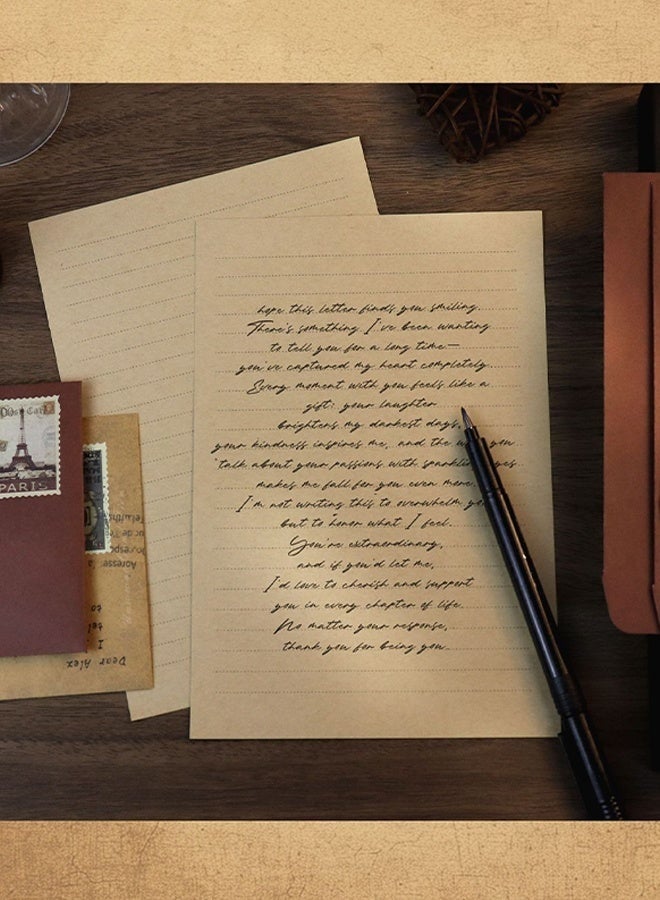 hope this letter finds you smiling.
There's something I've been wanting
to tell you for a long time—
you've captured my heart completely.
Every moment with you feels like a
gift: your laughter
brightens my darkest days,
your kindness inspires me, and the you
talk about your passions with
makes me fall for you even more.
I'm not writing this to overwhelm
but to honor what I feel.
You're extraordinary,
and if you'd let me,
I'd love to cherish and support
you in every chapter of life.
No matter your response,
thank you for being you.
Post Card
PARIS
Adresse
to
tell
I
Dear Alex